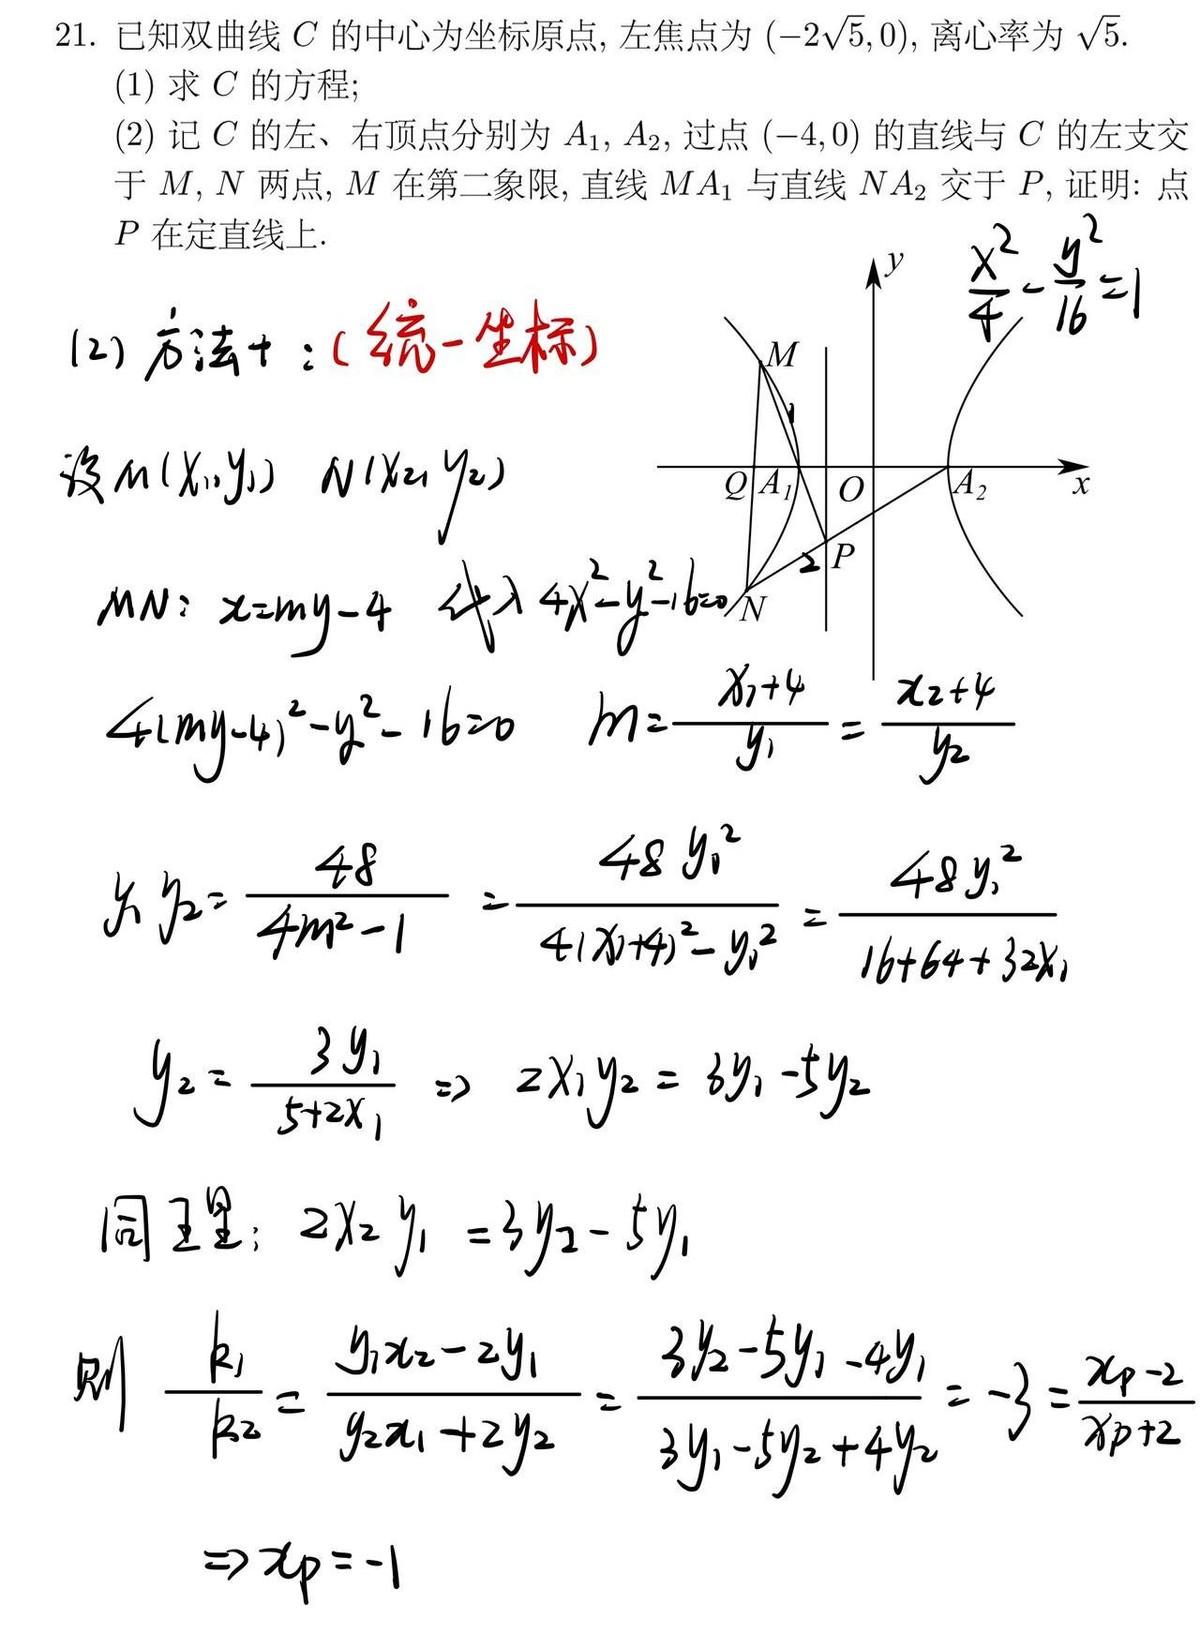 21. 已知双曲线 C 的中心为坐标原点, 左焦点为 (−2√5, 0), 离心率为 √5.
(1) 求 C 的方程;
(2) 记 C 的左、右顶点分别为 A₁, A₂, 过点 (−4, 0) 的直线与 C 的左支交
于 M, N 两点, M 在第二象限, 直线 MA₁ 与直线 NA₂ 交于 P, 证明: 点
P 在定直线上.
x²/4 - y²/16 = 1
y
(2) 方法十:(统一坐标)
M
1
设M(x₁,y₁) N(x₂,y₂)
Q A₁ O A₂ x
2 P
N
MN: x=my-4 代入 4x²-y²-16=0
4(my-4)²-y²-16=0 m= (x₁+4)/y₁ = (x₂+4)/y₂
y₁y₂= 48/(4m²-1) = 48y₁²/(4(x₁+4)²-y₁²) = 48y₁²/(16+64+32x₁)
y₂= 3y₁/(5+2x₁) ⇒ 2x₁y₂ = 3y₁-5y₂
同理: 2x₂y₁ =3y₂-5y₁
则 k₁/k₂ = (y₁x₂-2y₁)/(y₂x₁+2y₂) = (3y₂-5y₁-4y₁)/(3y₁-5y₂+4y₂) = -3 = (xₚ-2)/(xₚ+2)
⇒xₚ=-1